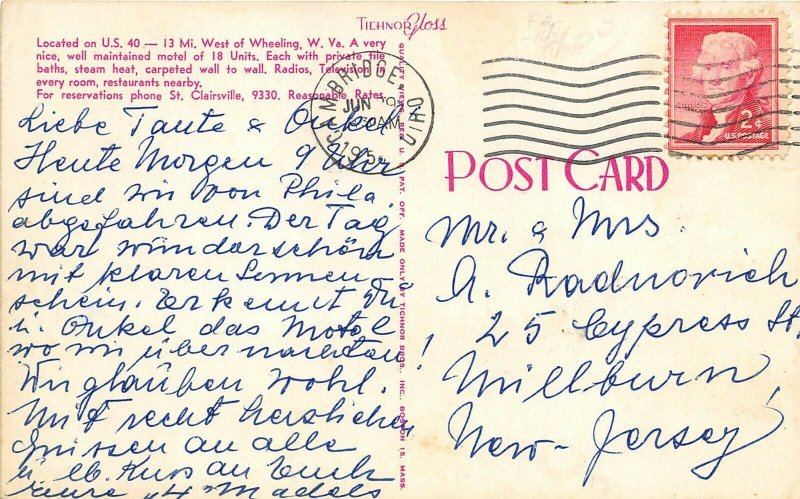 TICHNOR Gloss
Located on U.S. 40 — 13 Mi. West of Wheeling, W. Va. A very
nice, well maintained motel of 18 Units. Each with private tile
baths, steam heat, carpeted wall to wall. Radios, Television in
every room, restaurants nearby.
For reservations phone St. Clairsville, 9330. Reasonable Rates.
Liebe Tante & Onkel
Heute Morgen 9 Uhr
sind wir von Phila.
abgefahren. Der Tag
war wunderschön
mit klaren Sonnen
schein. Erkennt Du
u. Onkel das Motel
wo wir übernachten!
Wir glauben wohl.
Mit recht herzlichen
Grüssen an alle
u. lb. Kuss an Euch
eure 4 Mädels
QUALITY VIEWS REG. U. S. PAT. OFF. MADE ONLY BY TICHNOR BROS., INC., BOSTON 15, MASS.
CAMBRIDGE OHIO
JUN
AM
POST CARD
JEFFERSON
2¢
U.S. POSTAGE
Mr. & Mrs.
A. Radnovich
25 Cypress St.
Millburn,
New-Jersey